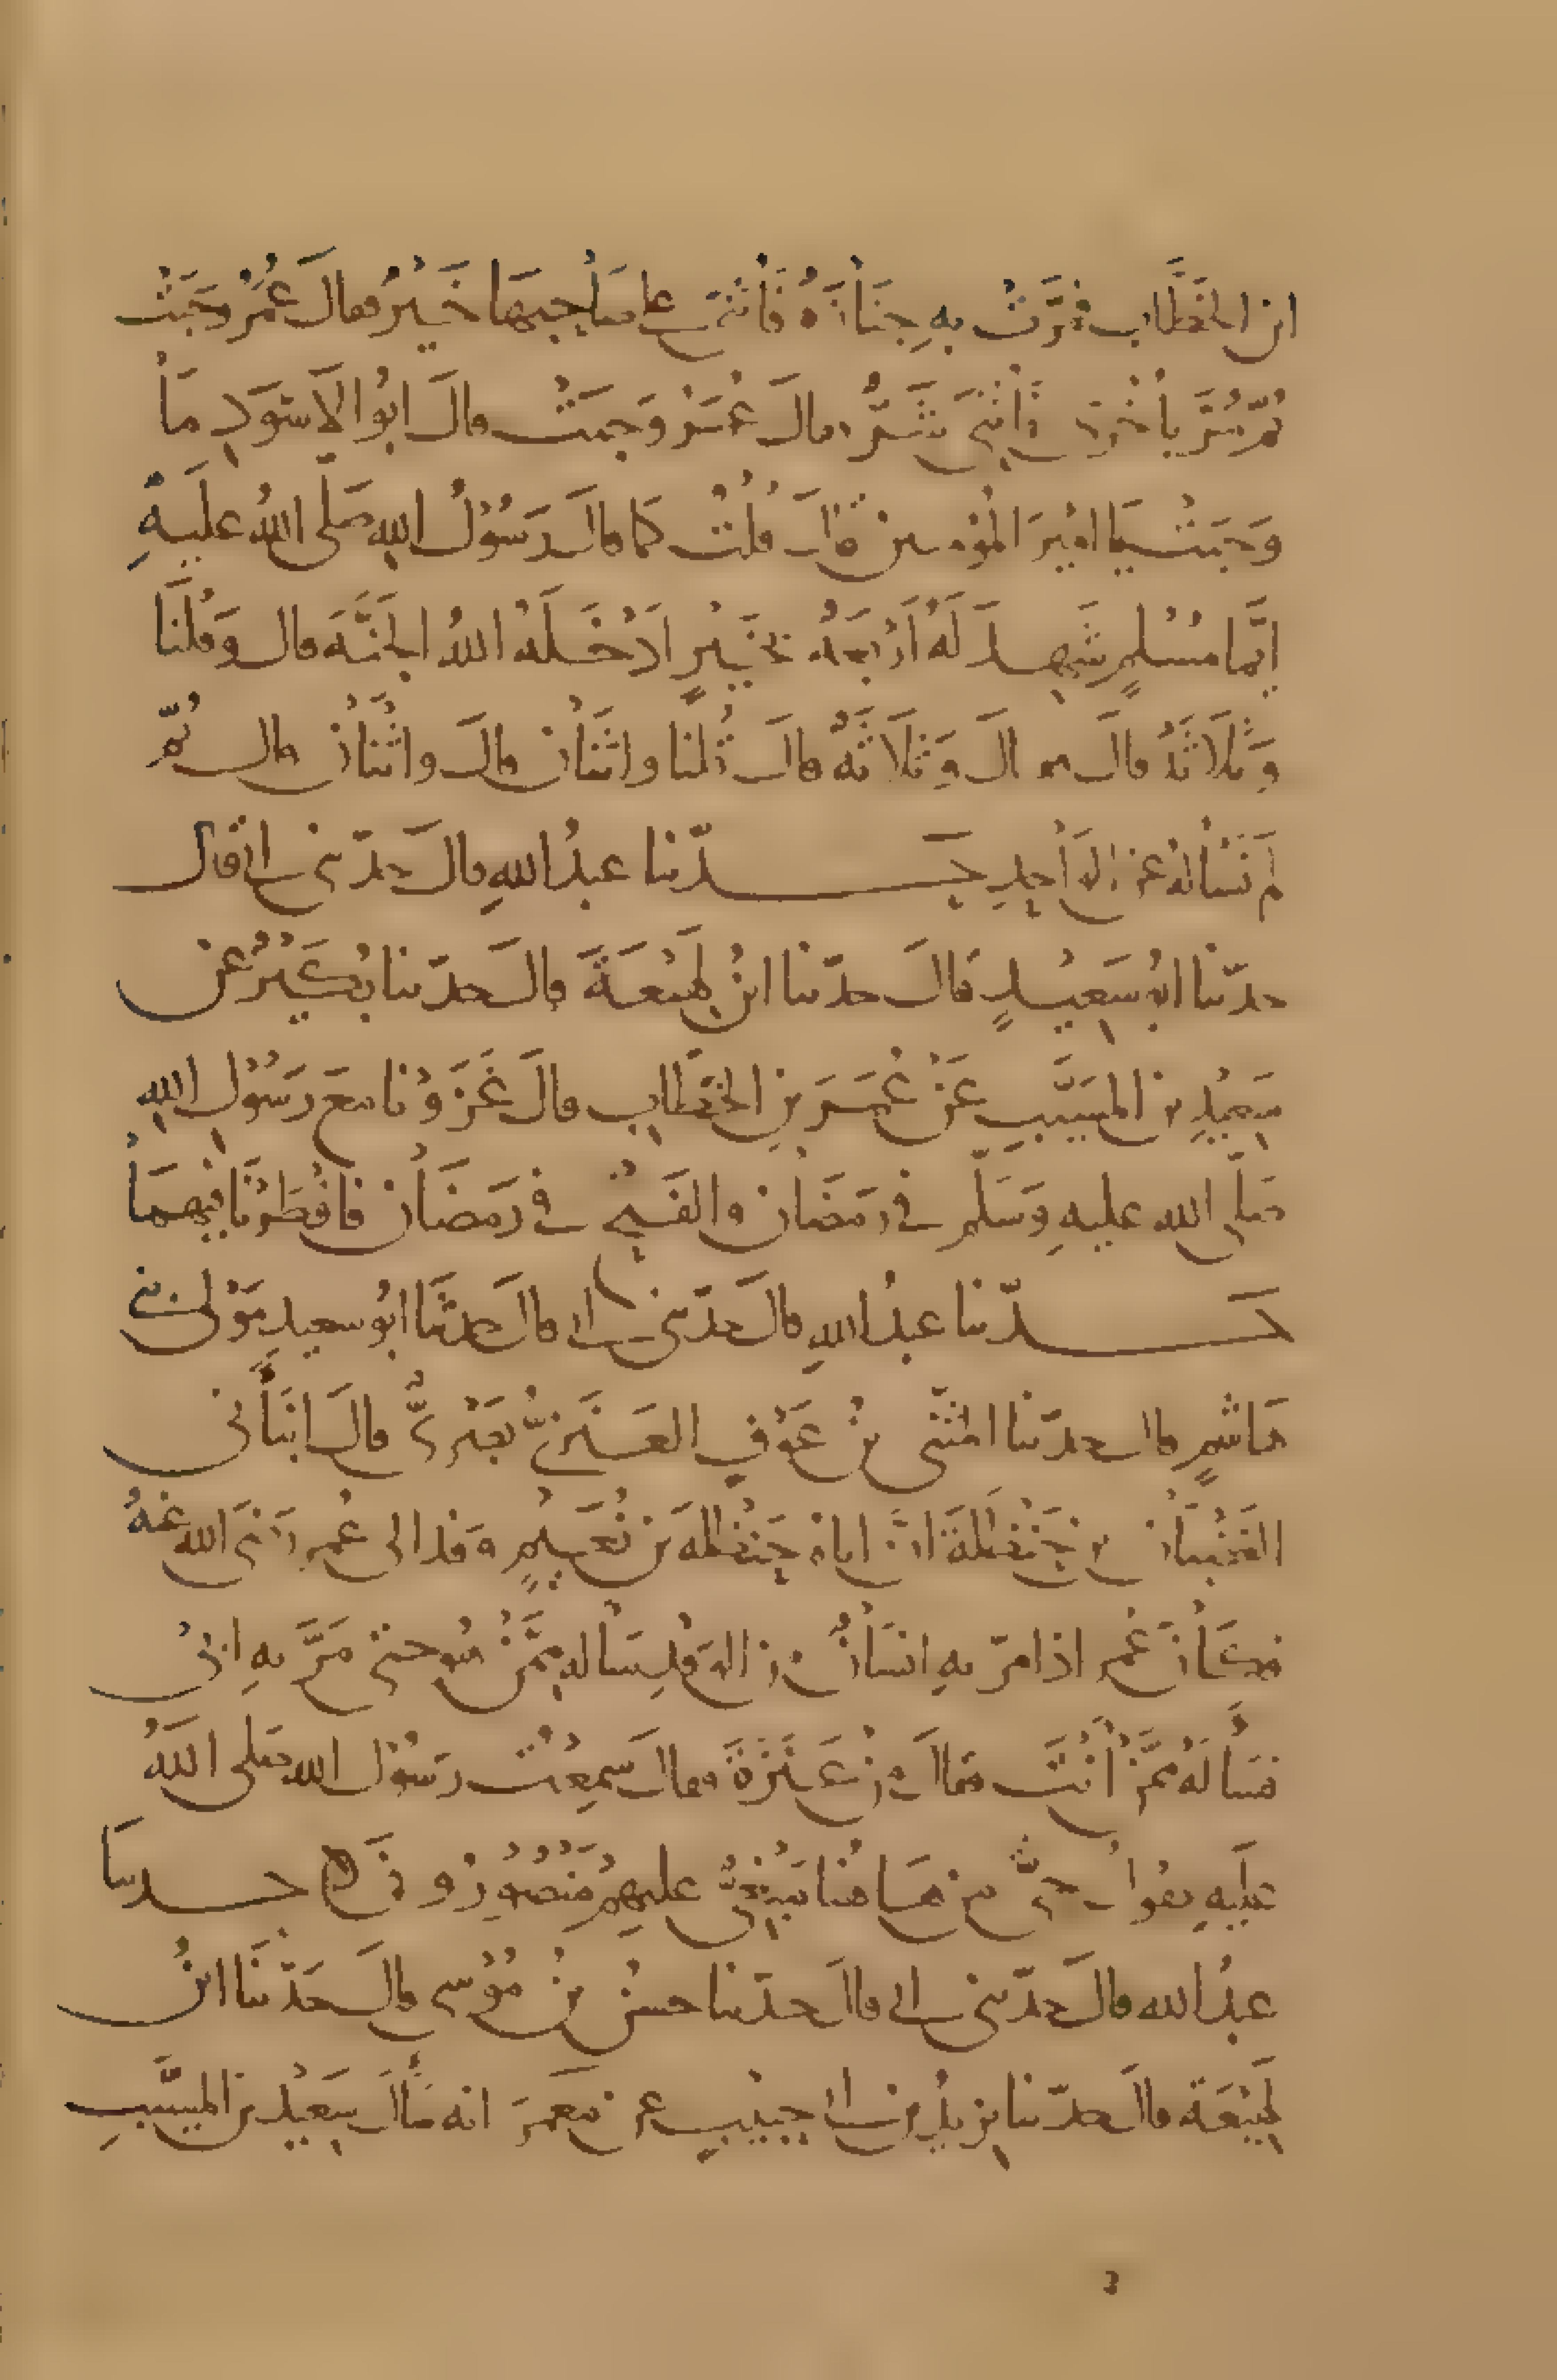 ابن الخَطَّاب فمَرَّتْ بِهِ جِنَازَةٌ فَأُثْنِيَ على صَاحِبِهَا خَيْرٌ فقالَ عُمَرُ وجَبَتْ
ثُمَّ مُرَّ بِأُخْرَى فَأُثْنِيَ شَرٌّ فقالَ عُمَرُ وَجَبَتْ قالَ ابُوا الاَسْوَدِ مَا
وَجَبَتْ يَا امِيْرَ المُؤمنين قَالَ قُلْتُ كَمَا قالَ رَسُوْلُ اللهِ صَلَّى اللهُ عَلَيْهِ
ايُّمَا مُسْلِمٍ شَهِدَ لَهُ اَرْبَعَةٌ بِخَيْرٍ اَدْخَلَهُ اللهُ الجَنَّةَ قال وَقُلْنَا
وَثَلَاثَةٌ قالَ قالَ وَثَلَاثَةٌ قالَ قُلنا واثنَانِ قالَ واثْنَانِ قال ثُمَّ
لَم نَسْأَلهُ عَنِ الوَاحِدِ حَدّثنا عبدُ اللهِ قالَ حدّثني ابي قال
حدّثنا ابُو سَعِيْدٍ قَالَ حدّثنا ابْنُ لَهِيْعَةَ قالَ حدّثنا بُكَيْرٌ عَنْ
سَعِيْدِ بن المسَيَّبِ عَنْ عُمَرَ بنِ الخَطَّابِ قالَ غَزَوْنا مَعَ رَسُوْلِ اللهِ
صَلّى الله عليهِ وَسَلّم في رَمَضَان والفَتْحُ في رَمَضَان فافْطَرْنَا فِيْهِمَا
حَدّثنا عبدُ اللهِ قالَ حدّثني ابي قالَ حدثَنَا ابُو سعيدٍ مَوْلَى بَني
هَاشِمٍ قال حدّثنا المثَنّى بنُ عَوْفٍ العَنَزِيُّ بَصْرِيٌّ قالَ انبَأَني
الغَضْبَانُ بن حَنْظَلَةَ انَّ اباهُ حَنْظَلةَ بن نُعَيْمٍ وفدَ الى عُمر رَضيَ الله عَنهُ
فكَانَ عُمر اذا مَرّ بهِ انسَانٌ من الوَفدِ سَاله مِمَّنْ هُو حتى مَرَّ بهِ ابي
فسَأَلَهُ مِمَّنْ أَنْتَ فقالَ من عَنَزَةَ فقال سَمِعْتُ رَسُوْل الله صَلى اللهُ
عليهِ يقولُ حَيٌّ من هَاهُنا مَبْغِيٌّ عليهِمْ مَنْصُوْرُونَ حدثَنا
عبدُ الله قالَ حدّثني ابي قالَ حدّثنا حسنُ بنُ مُوْسى قالَ حَدّثَنَا ابْنُ
لَهِيْعَةَ قالَ حدّثنا يزيدُ بن ابي حبيْبٍ عن مَعمَرَ انه سَأَلَ سَعِيْدَ بن المسيَّبِ